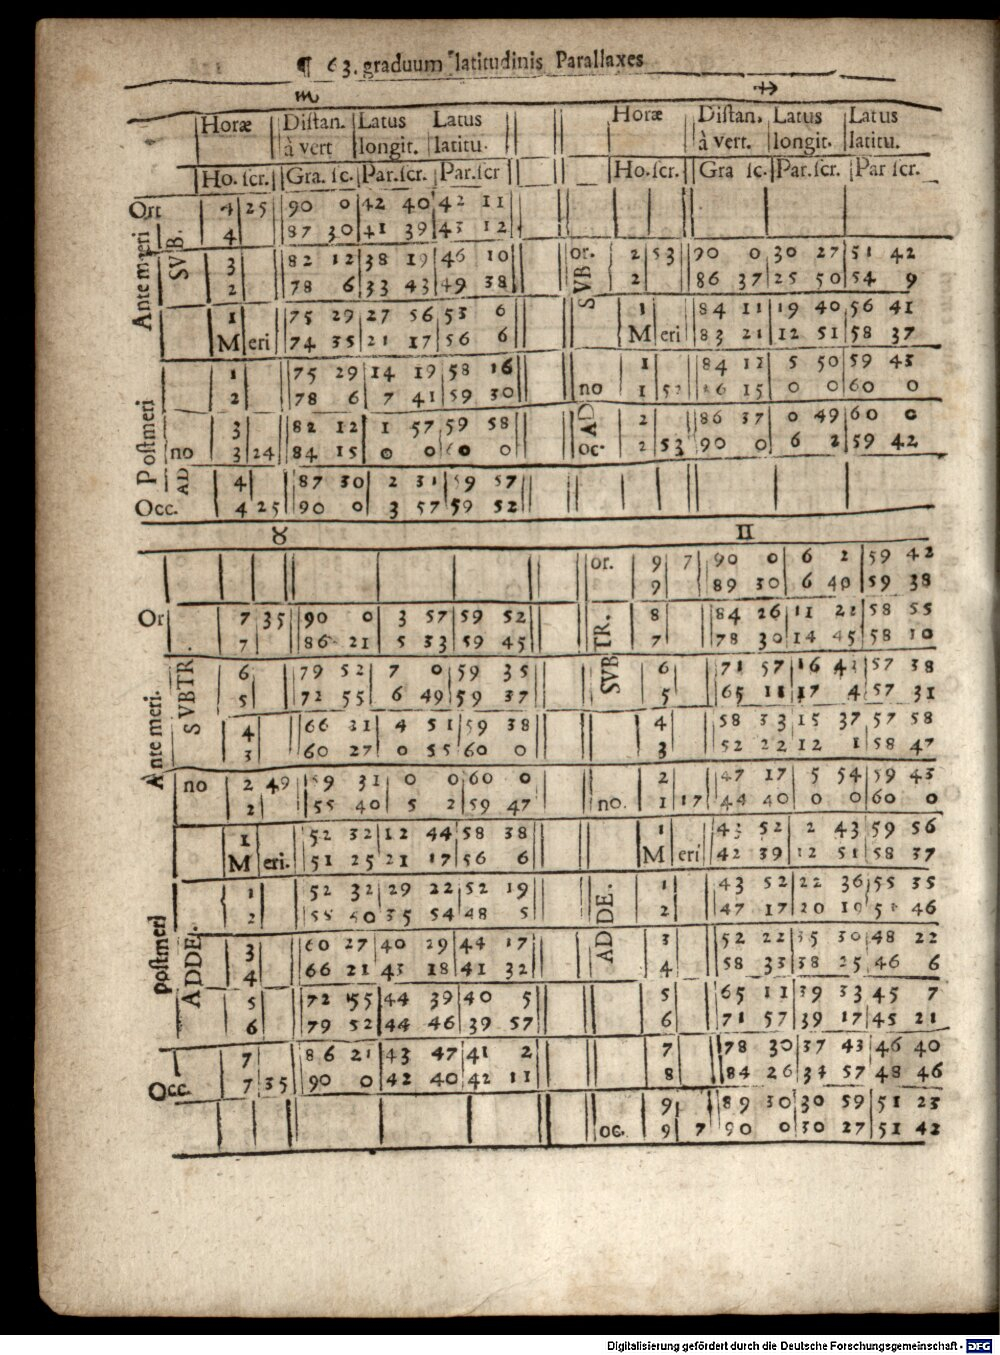 ¶ 63. graduum latitudinis Parallaxes
♏ ♐
Horæ Distan. Latus Latus Horæ Distan. Latus Latus
à vert longit. latitu. à vert. longit. latitu.
Ho. scr. Gra. sc. Par. scr. Par. scr Ho. scr. Gra sc. Par. scr. Par scr.
Ort 4 25 90 0 42 40 42 11
4 87 30 41 39 43 12
Ante meri SVB. 3 82 12 38 19 46 10 or. 2 53 90 0 30 27 51 42
2 78 6 33 43 49 38 SVB 2 86 37 25 50 54 9
1 75 29 27 56 53 6 1 84 11 19 40 56 41
Meri 74 35 21 17 56 6 Meri 83 21 12 51 58 37
1 75 29 14 19 58 16 1 84 12 5 50 59 43
2 78 6 7 41 59 30 no 1 52 86 15 0 0 60 0
Postmeri 3 82 12 1 57 59 58 AD 2 86 37 0 49 60 0
no 3 24 84 15 0 0 60 0 oc. 2 53 90 0 6 2 59 42
AD 4 87 30 2 31 59 57
Occ. 4 25 90 0 3 57 59 52
♉ ♊
or. 9 7 90 0 6 2 59 42
9 89 30 6 40 59 38
Or 7 35 90 0 3 57 59 52 8 84 26 11 21 58 55
7 86 21 5 33 59 45 SVBTR. 7 78 30 14 45 58 10
Ante meri. SVBTR. 6 79 52 7 0 59 35 6 71 57 16 42 57 38
5 72 55 6 49 59 37 5 65 11 17 4 57 31
4 66 21 4 51 59 38 4 58 33 15 37 57 58
3 60 27 0 55 60 0 3 52 22 12 1 58 47
no 2 49 59 31 0 0 60 0 2 47 17 5 54 59 43
2 55 40 5 2 59 47 no. 1 17 44 40 0 0 60 0
1 52 32 12 44 58 38 1 43 52 2 43 59 56
Meri. 51 25 21 17 56 6 Meri 42 39 12 51 58 37
1 52 32 29 22 52 19 ADDE. 1 43 52 22 36 55 35
2 55 40 35 54 48 5 2 47 17 20 19 46
postmeri ADDE. 3 60 27 40 29 44 17 3 52 22 35 30 48 22
4 66 21 43 18 41 32 4 58 33 38 25 46 6
5 72 55 44 39 40 5 5 65 11 39 33 45 7
6 79 52 44 46 39 57 6 71 57 39 17 45 21
7 86 21 43 47 41 2 7 78 30 37 43 46 40
Occ. 7 35 90 0 42 40 42 11 8 84 26 34 57 48 46
9 89 30 30 59 51 23
oc. 9 7 90 0 30 27 51 42
Digitalisierung gefördert durch die Deutsche Forschungsgemeinschaft - DFG